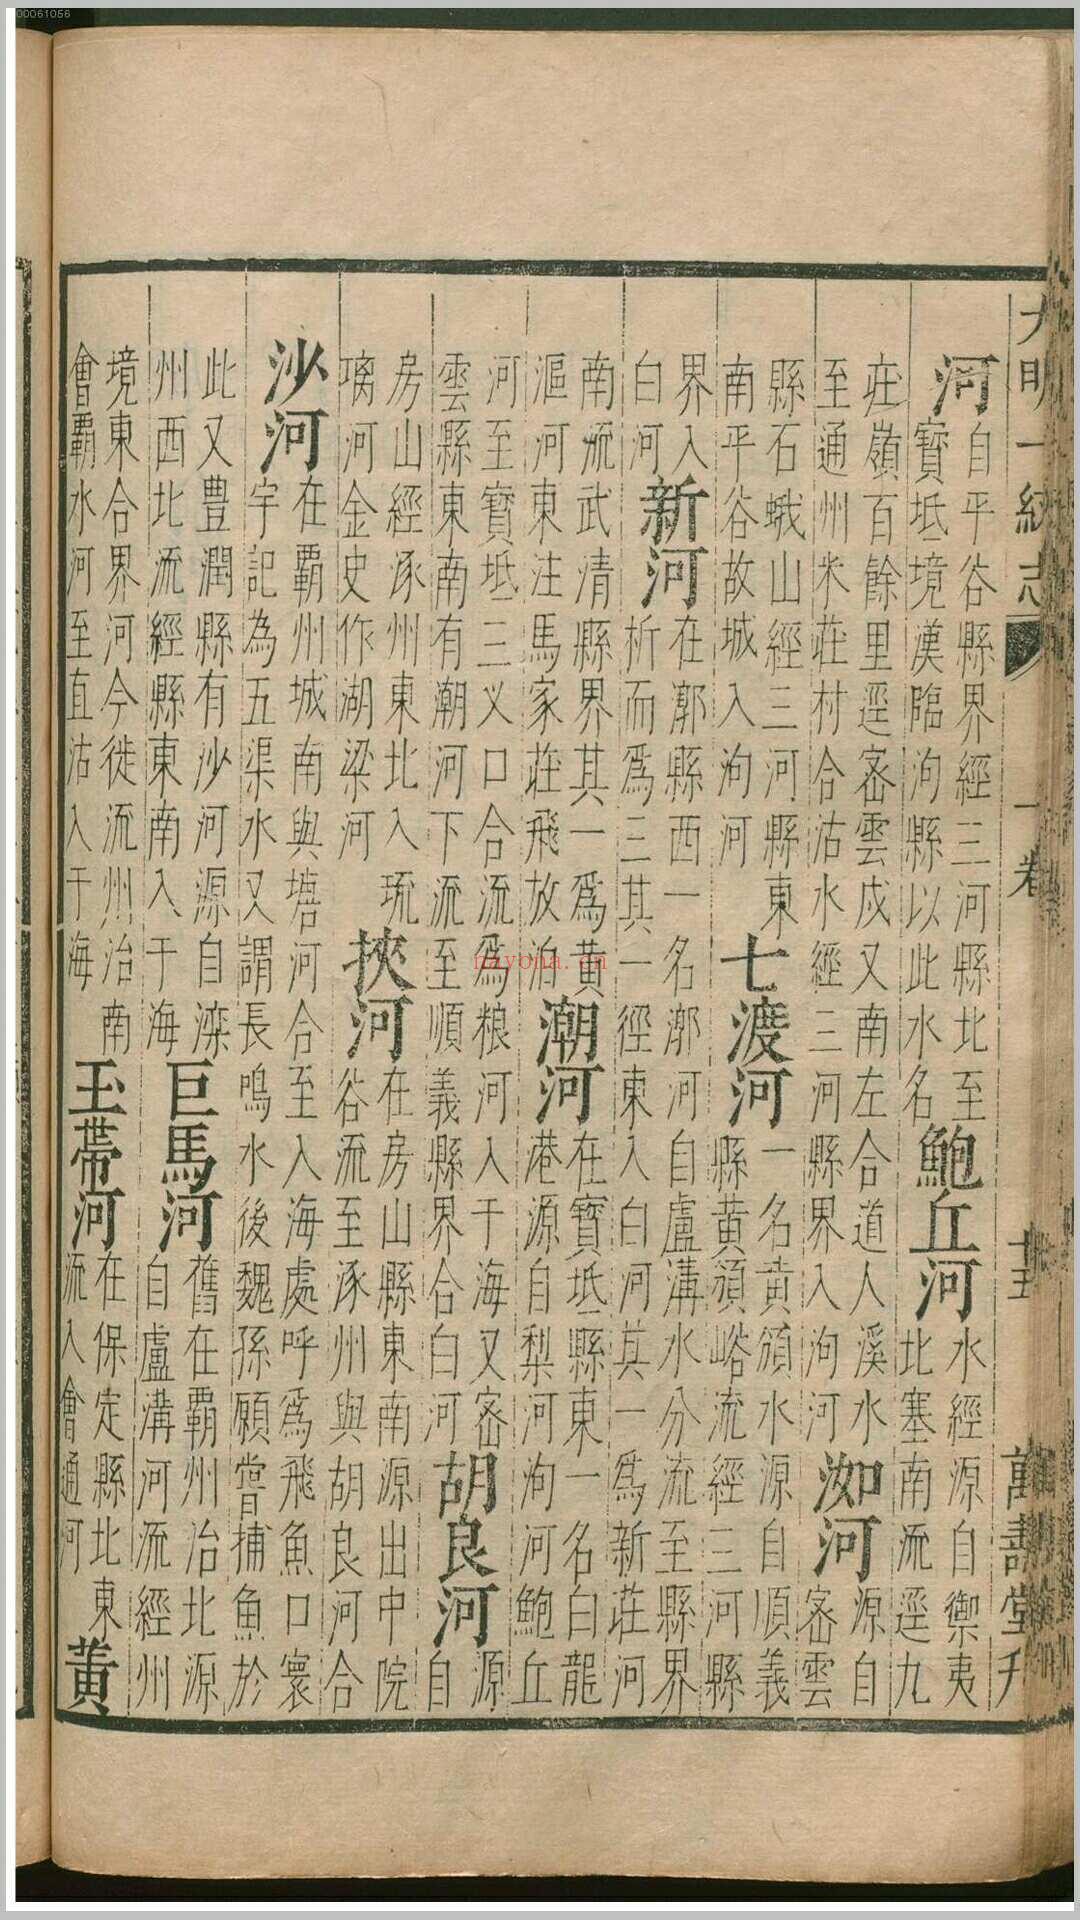 大明一統志 一卷 十五 萬壽堂刊
河
自平谷縣界經三河縣北至
寳坻境漢臨泃縣以此水名
鮑丘河
水經源自禦夷
北塞南流逕九
莊嶺百餘里逕宻雲戍又南左合道人溪水
至通州米莊村合沽水經三河縣界入泃河
洳河
源自
宻雲
縣石蛾山經三河縣東
南平谷故城入泃河
七渡河
一名黄頒水源自順義
縣黄頒峪流經三河縣
界入
白河
新河
在漷縣西一名漷河自盧溝水分流至縣界
析而爲三其一徑東入白河其一爲新莊河
南流武清縣界其一爲黄
漚河東注馬家莊飛放泊
潮河
在寳坻縣東一名白龍
港源自梨河泃河鮑丘
河至寳坻三义口合流爲粮河入于海又宻
雲縣東南有潮河下流至順義縣界合白河
胡良河
源
自
房山經涿州東北入琉
璃河金史作湖梁河
挾河
在房山縣東南源出中院
谷流至涿州與胡良河合
沙河
在覇州城南與塘河合至入海處呼爲飛魚口寰
宇記為五渠水又謂長鳴水後魏孫願甞捕魚於
此又豊潤縣有沙河源自滦
州西北流經縣東南入于海
巨馬河
舊在覇州治北源
自盧溝河流經州
境東合界河今徙流州治南
會覇水河至直沽入于海
玉帶河
在保定縣北東
流入會通河
黄
00061056
nayona.cn